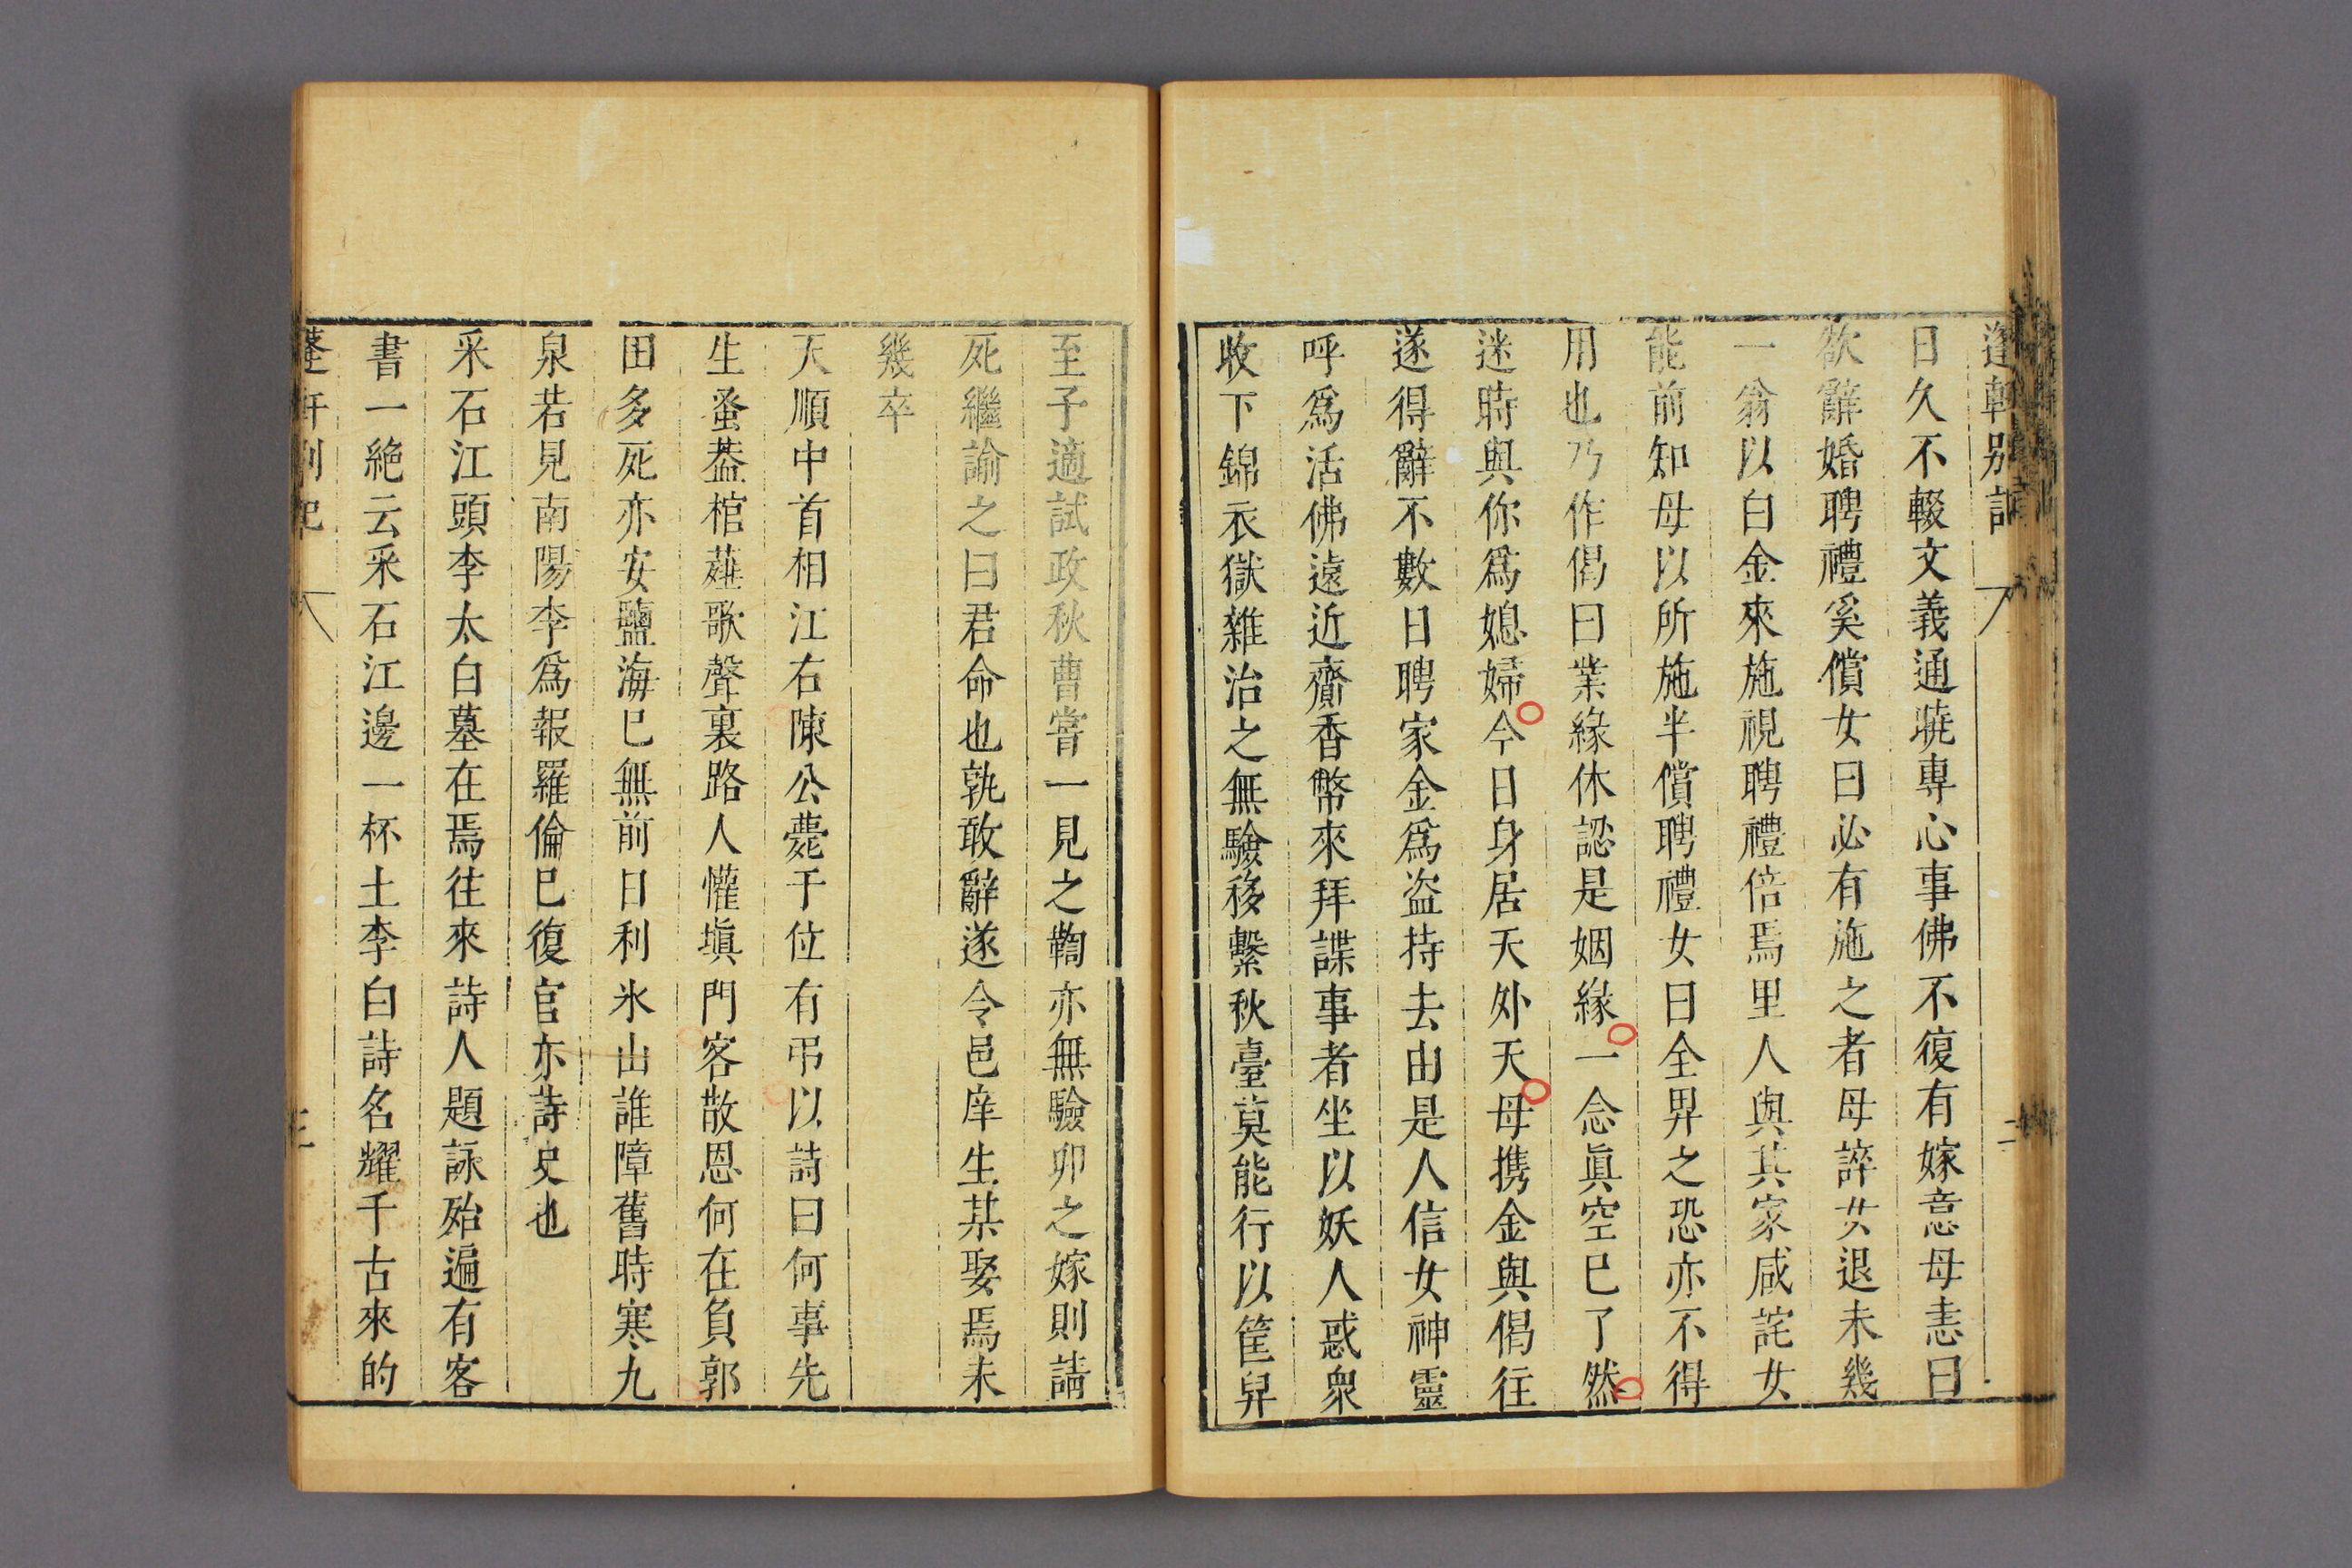 蓬軒别記 二
日久不輟文義通曉專心事佛不復有嫁意母恚曰
欲辭婚聘禮奚償女曰必有施之者母誶女退未幾
一翁以白金來施視聘禮倍焉里人與其家咸詫女
能前知母以所施半償聘禮女曰全畀之恐亦不得
用也乃作偈曰業緣休認是姻緣一念眞空已了然
迷時與你爲媳婦今日身居天外天母携金與偈往
遂得辭不數日聘家金爲盗持去由是人信女神靈
呼爲活佛遠近齎香幣來拜諜事者坐以妖人惑衆
收下錦衣獄雜治之無驗移繫秋臺莫能行以筐舁
至予適試政秋曹嘗一見之鞫亦無驗卯之嫁則請
死繼諭之曰君命也孰敢辭遂令邑庠生某娶焉未
幾卒
天順中首相江右陳公薨于位有弔以詩曰何事先
生蚤葢棺薤歌聲裏路人懽塡門客散恩何在負郭
田多死亦安鹽海已無前日利氷山誰障舊時寒九
泉若見南陽李爲報羅倫已復官亦詩史也
采石江頭李太白墓在焉往來詩人題詠殆遍有客
書一絶云采石江邊一杯土李白詩名耀千古來的
蓬軒别記 三